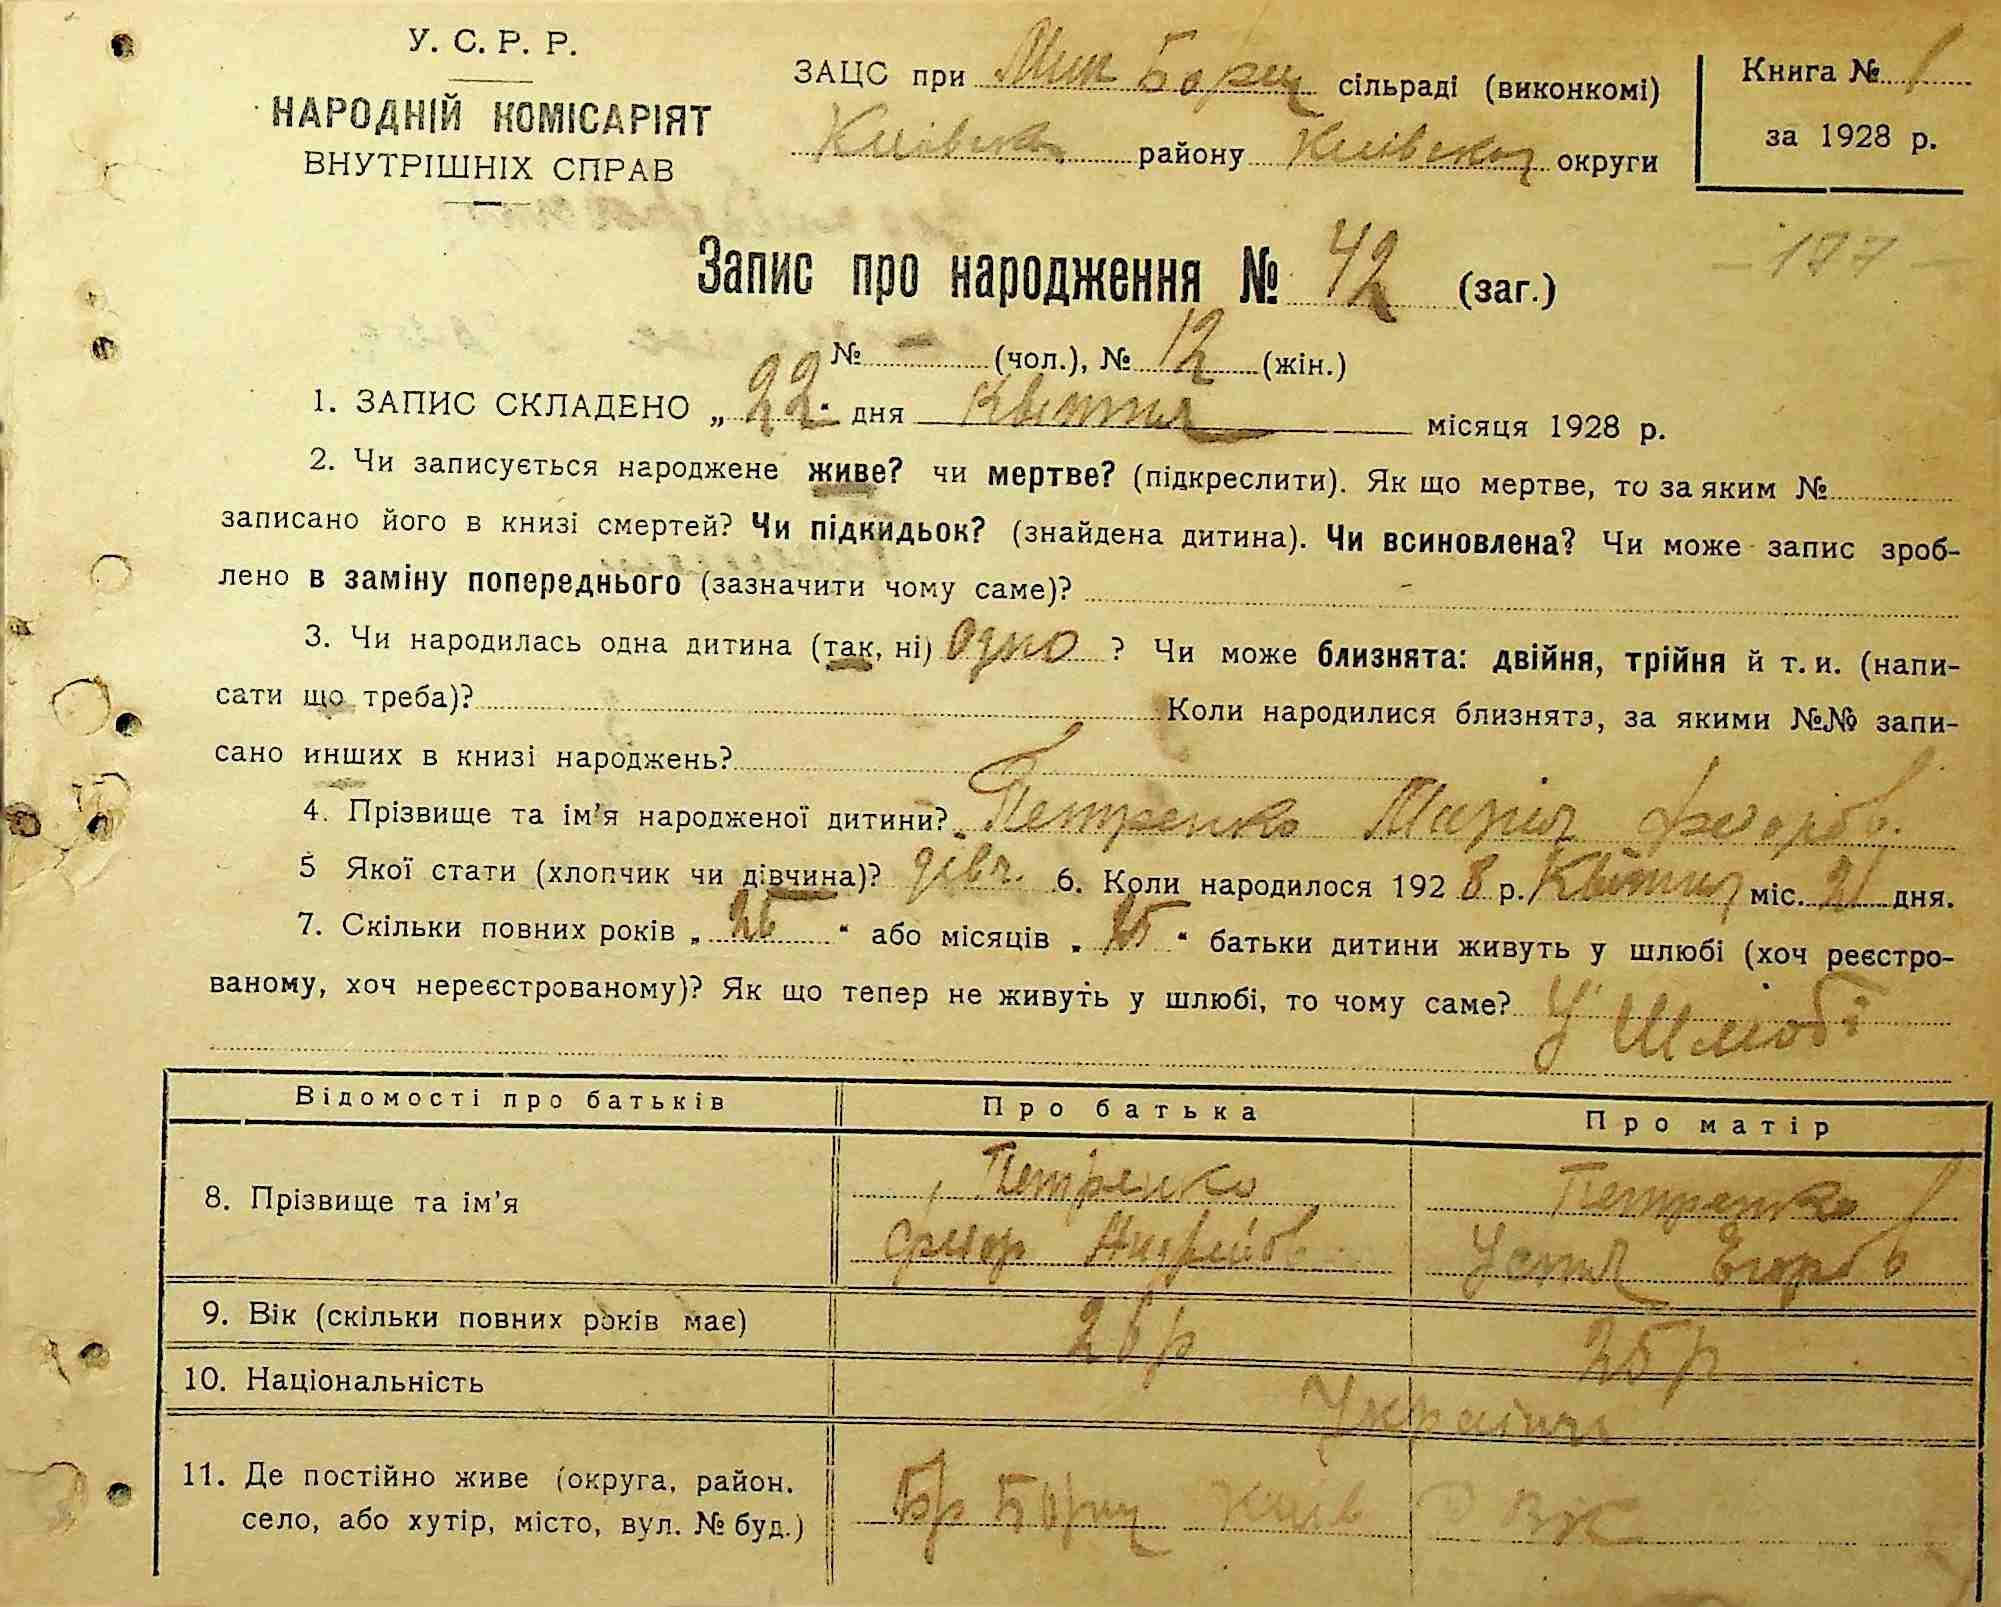 У. С. Р. Р.
НАРОДНІЙ КОМІСАРІЯТ
ВНУТРІШНІХ СПРАВ
ЗАЦС при Мик Борщ сільраді (виконкомі)
Київськ району Київськ округи
Книга № 1
за 1928 р.
- 197 -
Запис про народження № 42 (заг.)
№ — (чол.), № 12 (жін.)
1. ЗАПИС СКЛАДЕНО „ 22 “ дня Квітня місяця 1928 р.
2. Чи записується народжене живе? чи мертве? (підкреслити). Як що мертве, то за яким №
записано його в книзі смертей? Чи підкидьок? (знайдена дитина). Чи всиновлена? Чи може запис зроб-
лено в заміну попереднього (зазначити чому саме)?
3. Чи народилась одна дитина (так, ні) Одно ? Чи може близнята: двійня, трійня й т. и. (напи-
сати що треба)? Коли народилися близнята, за якими №№ запи-
сано инших в книзі народжень?
4. Прізвище та ім’я народженої дитини? Петренко Марія Федорів.
5 Якої стати (хлопчик чи дівчина)? дівч. 6. Коли народилося 1928 р. Квітня міс. 21 дня.
7. Скільки повних років „ “ або місяців „ “ батьки дитини живуть у шлюбі (хоч реєстро-
ваному, хоч нереєстрованому)? Як що тепер не живуть у шлюбі, то чому саме? У Шлюбі
Відомості про батьків Про батька Про матір
8. Прізвище та ім’я Петренко Петренко
Федор Андрейов Устия Егоров
9. Вік (скільки повних років має) 26 р 25 р
10. Національність Україн
11. Де постійно живе (округа, район.
село, або хутір, місто, вул. № буд.) Борщ Київ